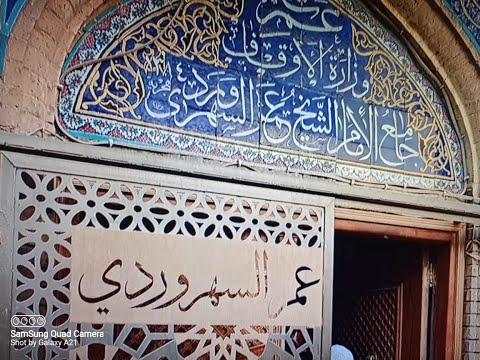 وزارة الأوقاف
جامع الإمام الشيخ عمر السهروردي
عمر السهروردي
SamSung Quad Camera
Shot by Galaxy A21